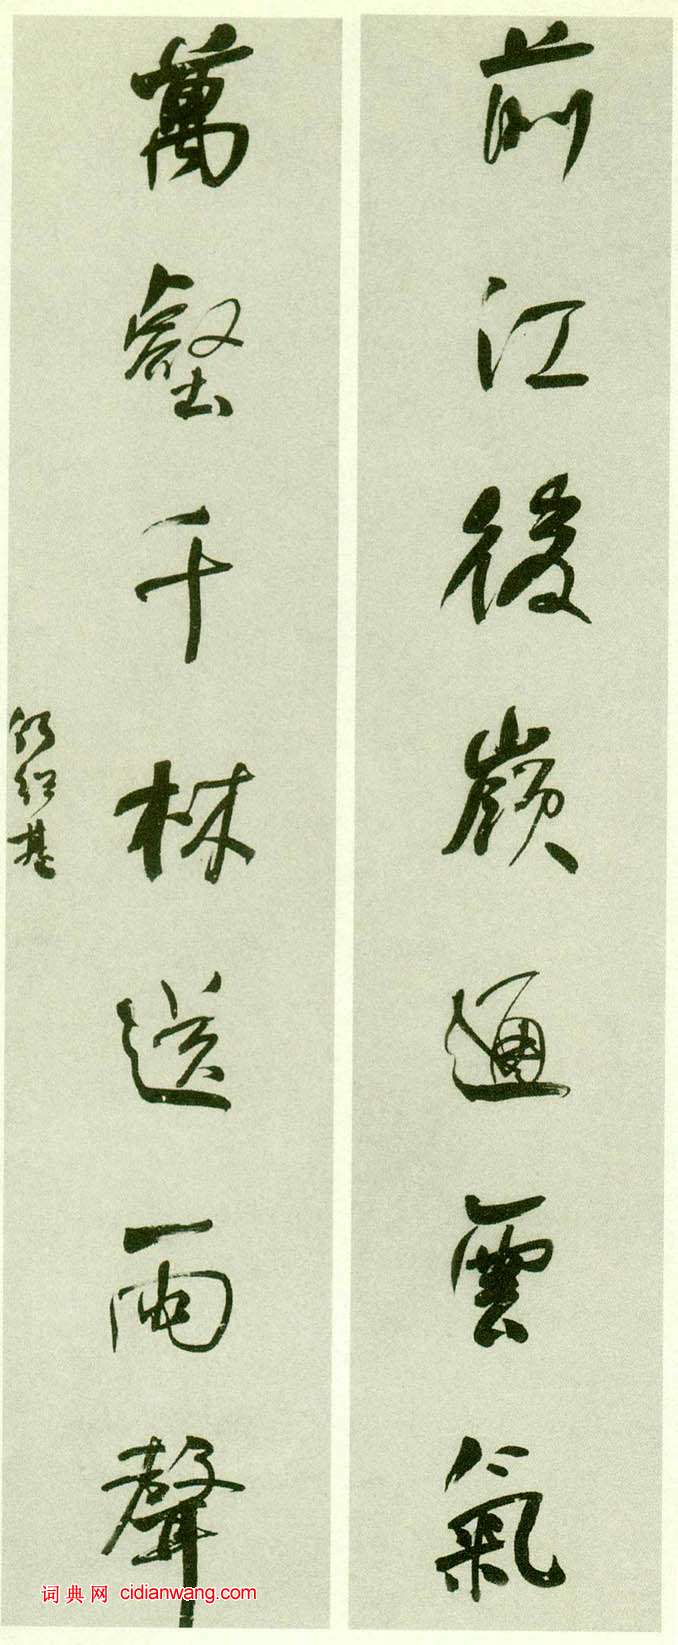 前江後嶺通雲氣
萬壑千林送雨聲
何紹基
词典网 cidianwang.com